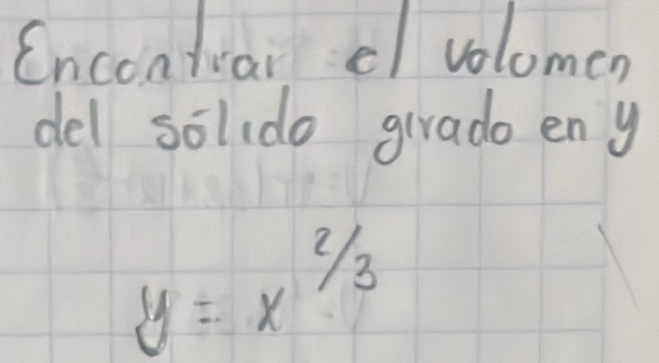 Encontrar el volumen
del sólido girado en y
y = x^2/3